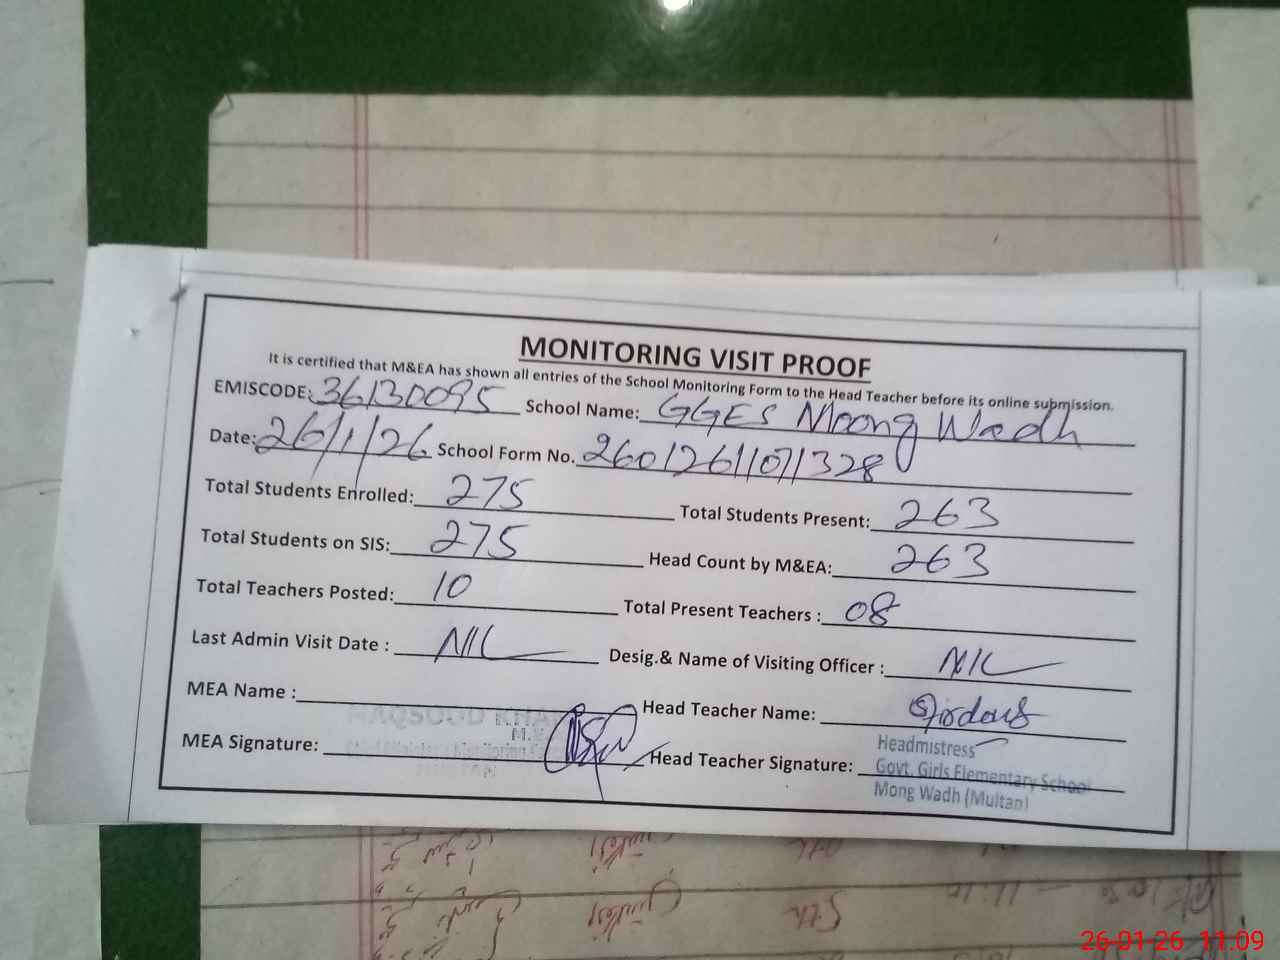 MONITORING VISIT PROOF
It is certified that M&EA has shown all entries of the School Monitoring Form to the Head Teacher before its online submission.
EMISCODE: 36130095 School Name: GGES Moong Wadh
Date: 26/1/26 School Form No. 260126110711328
Total Students Enrolled: 275 Total Students Present: 263
Total Students on SIS: 275 Head Count by M&EA: 263
Total Teachers Posted: 10 Total Present Teachers : 08
Last Admin Visit Date : NIL Desig.& Name of Visiting Officer : NIL
MEA Name : MAQSOOD KHAN Head Teacher Name: Firdous
MEA Signature: Head Teacher Signature:
Headmistress
Govt. Girls Elementary School
Mong Wadh (Multan)
5th
26-01-26 11:09